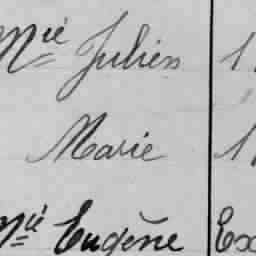 Mié Julien 1
Marie 1
Mié Eugène Ex